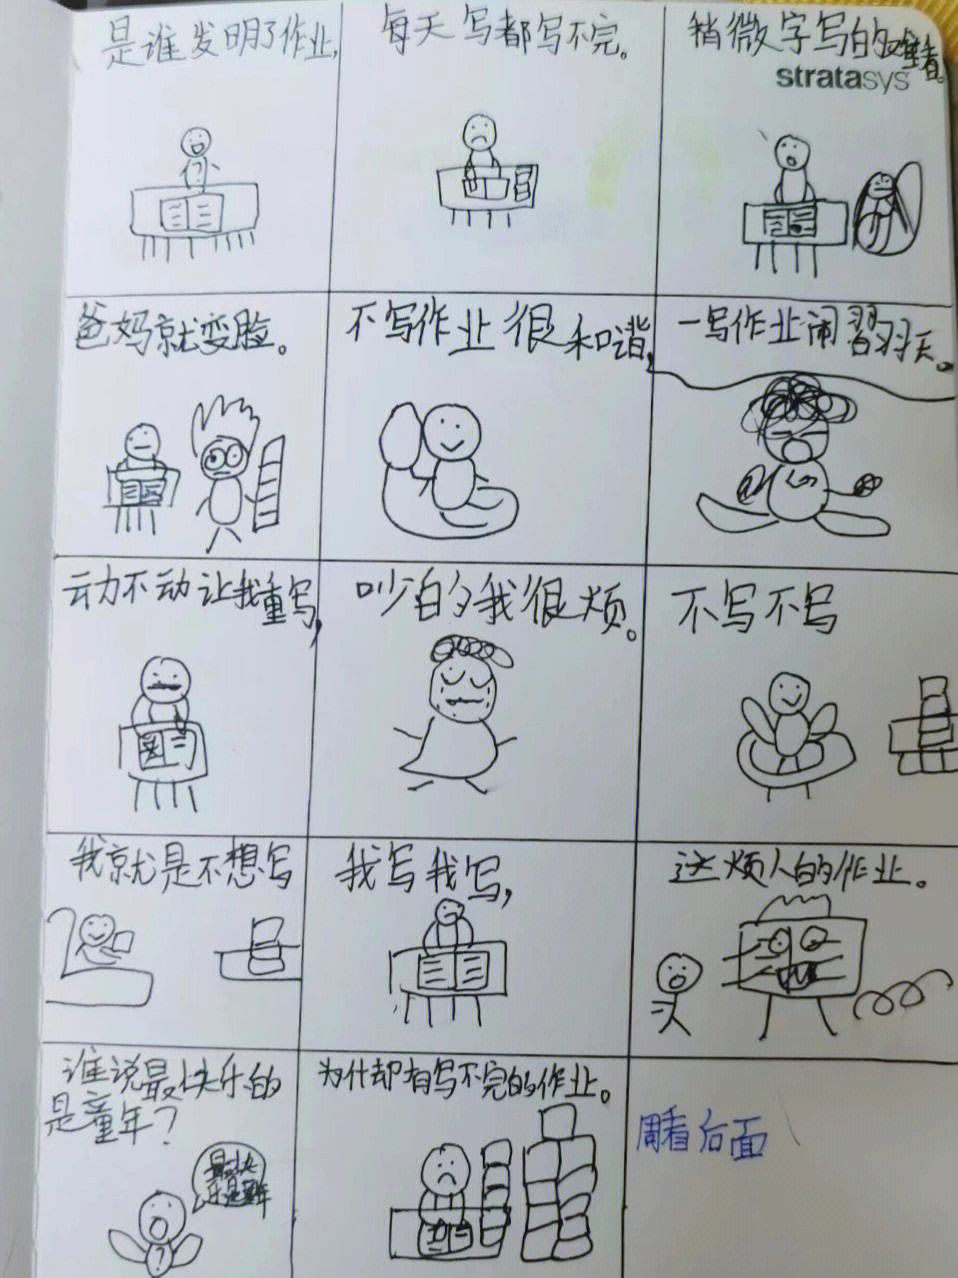 是谁发明了作业,
每天写都写不完。
稍微字写的难看。
stratasys
爸妈就变脸。
不写作业很和谐,
一写作业闹翻天。
动不动让我重写,
吵的我很烦。
不写不写
我就是不想写
我写我写,
这烦人的作业。
谁说最快乐的
是童年?
最快
乐是童年
为什却有写不完的作业。
看后面